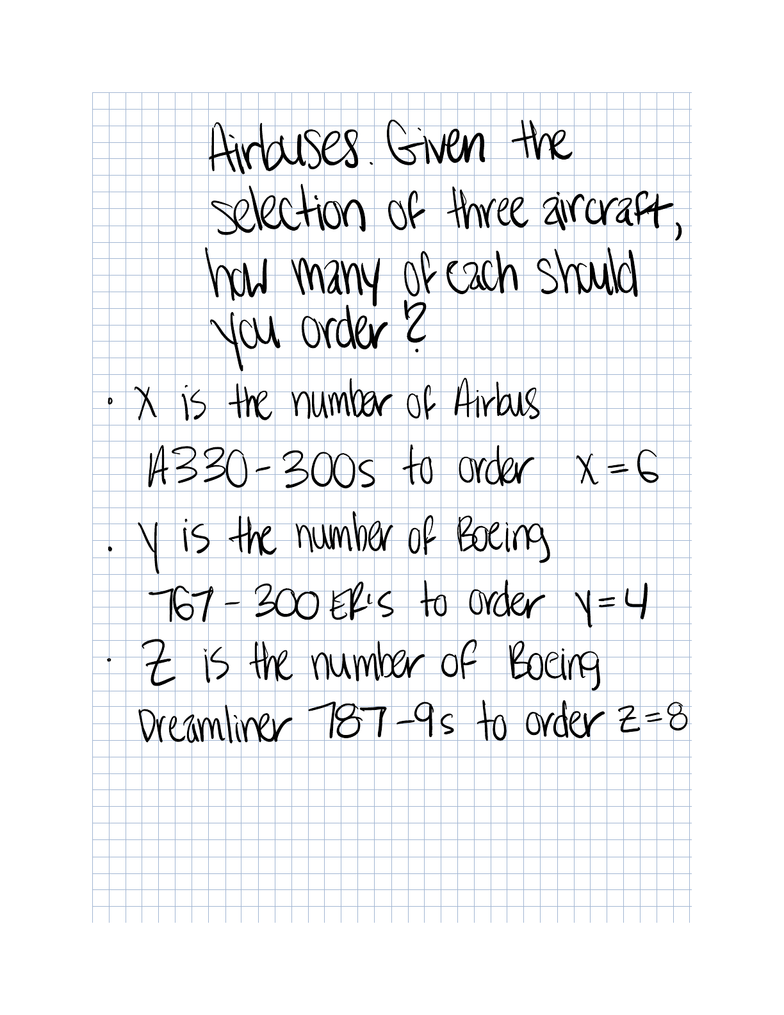 Airbuses. Given the
selection of three aircraft,
how many of each should
you order?
• X is the number of Airbus
A330-300s to order X=6
• Y is the number of Boeing
767-300 ER's to order Y=4
• Z is the number of Boeing
Dreamliner 787-9s to order Z=8